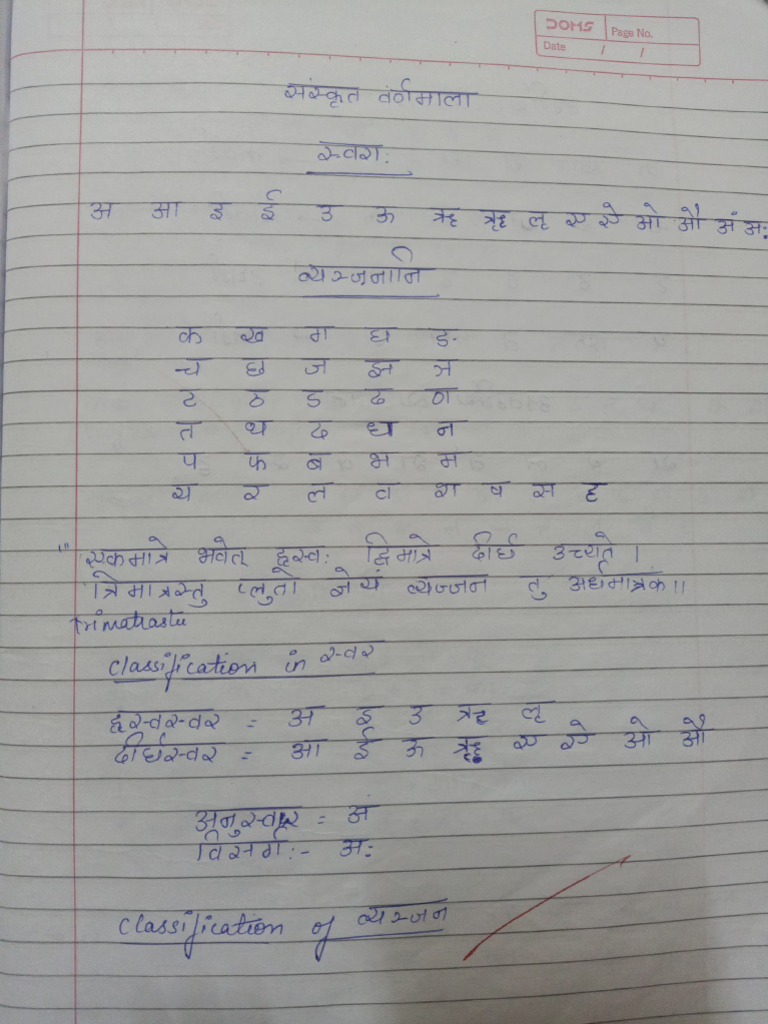 DOMS
Page No.
Date / /
संस्कृत वर्णमाला
स्वरा:
अ आ इ ई उ ऊ ऋ ॠ लृ ए ऐ ओ औ अं अ:
व्यञ्जनानि
क ख ग घ ङ
च छ ज झ ञ
ट ठ ड ढ ण
त थ द ध न
प फ ब भ म
य र ल व श ष स ह
"एकमात्रे भवेत् ह्रस्व: द्विमात्रे दीर्घ उच्यते ।
त्रिमात्रस्तु प्लुतो ज्ञेयं व्यञ्जन तु अर्धमात्रक ॥
trimatrastu
Classification in स्वर
ह्रस्वस्वर = अ इ उ ऋ लृ
दीर्घस्वर = आ ई ऊ ॠ ए ऐ ओ औ
अनुस्वार = अ
विसर्ग:- अ:
Classification of व्यञ्जन